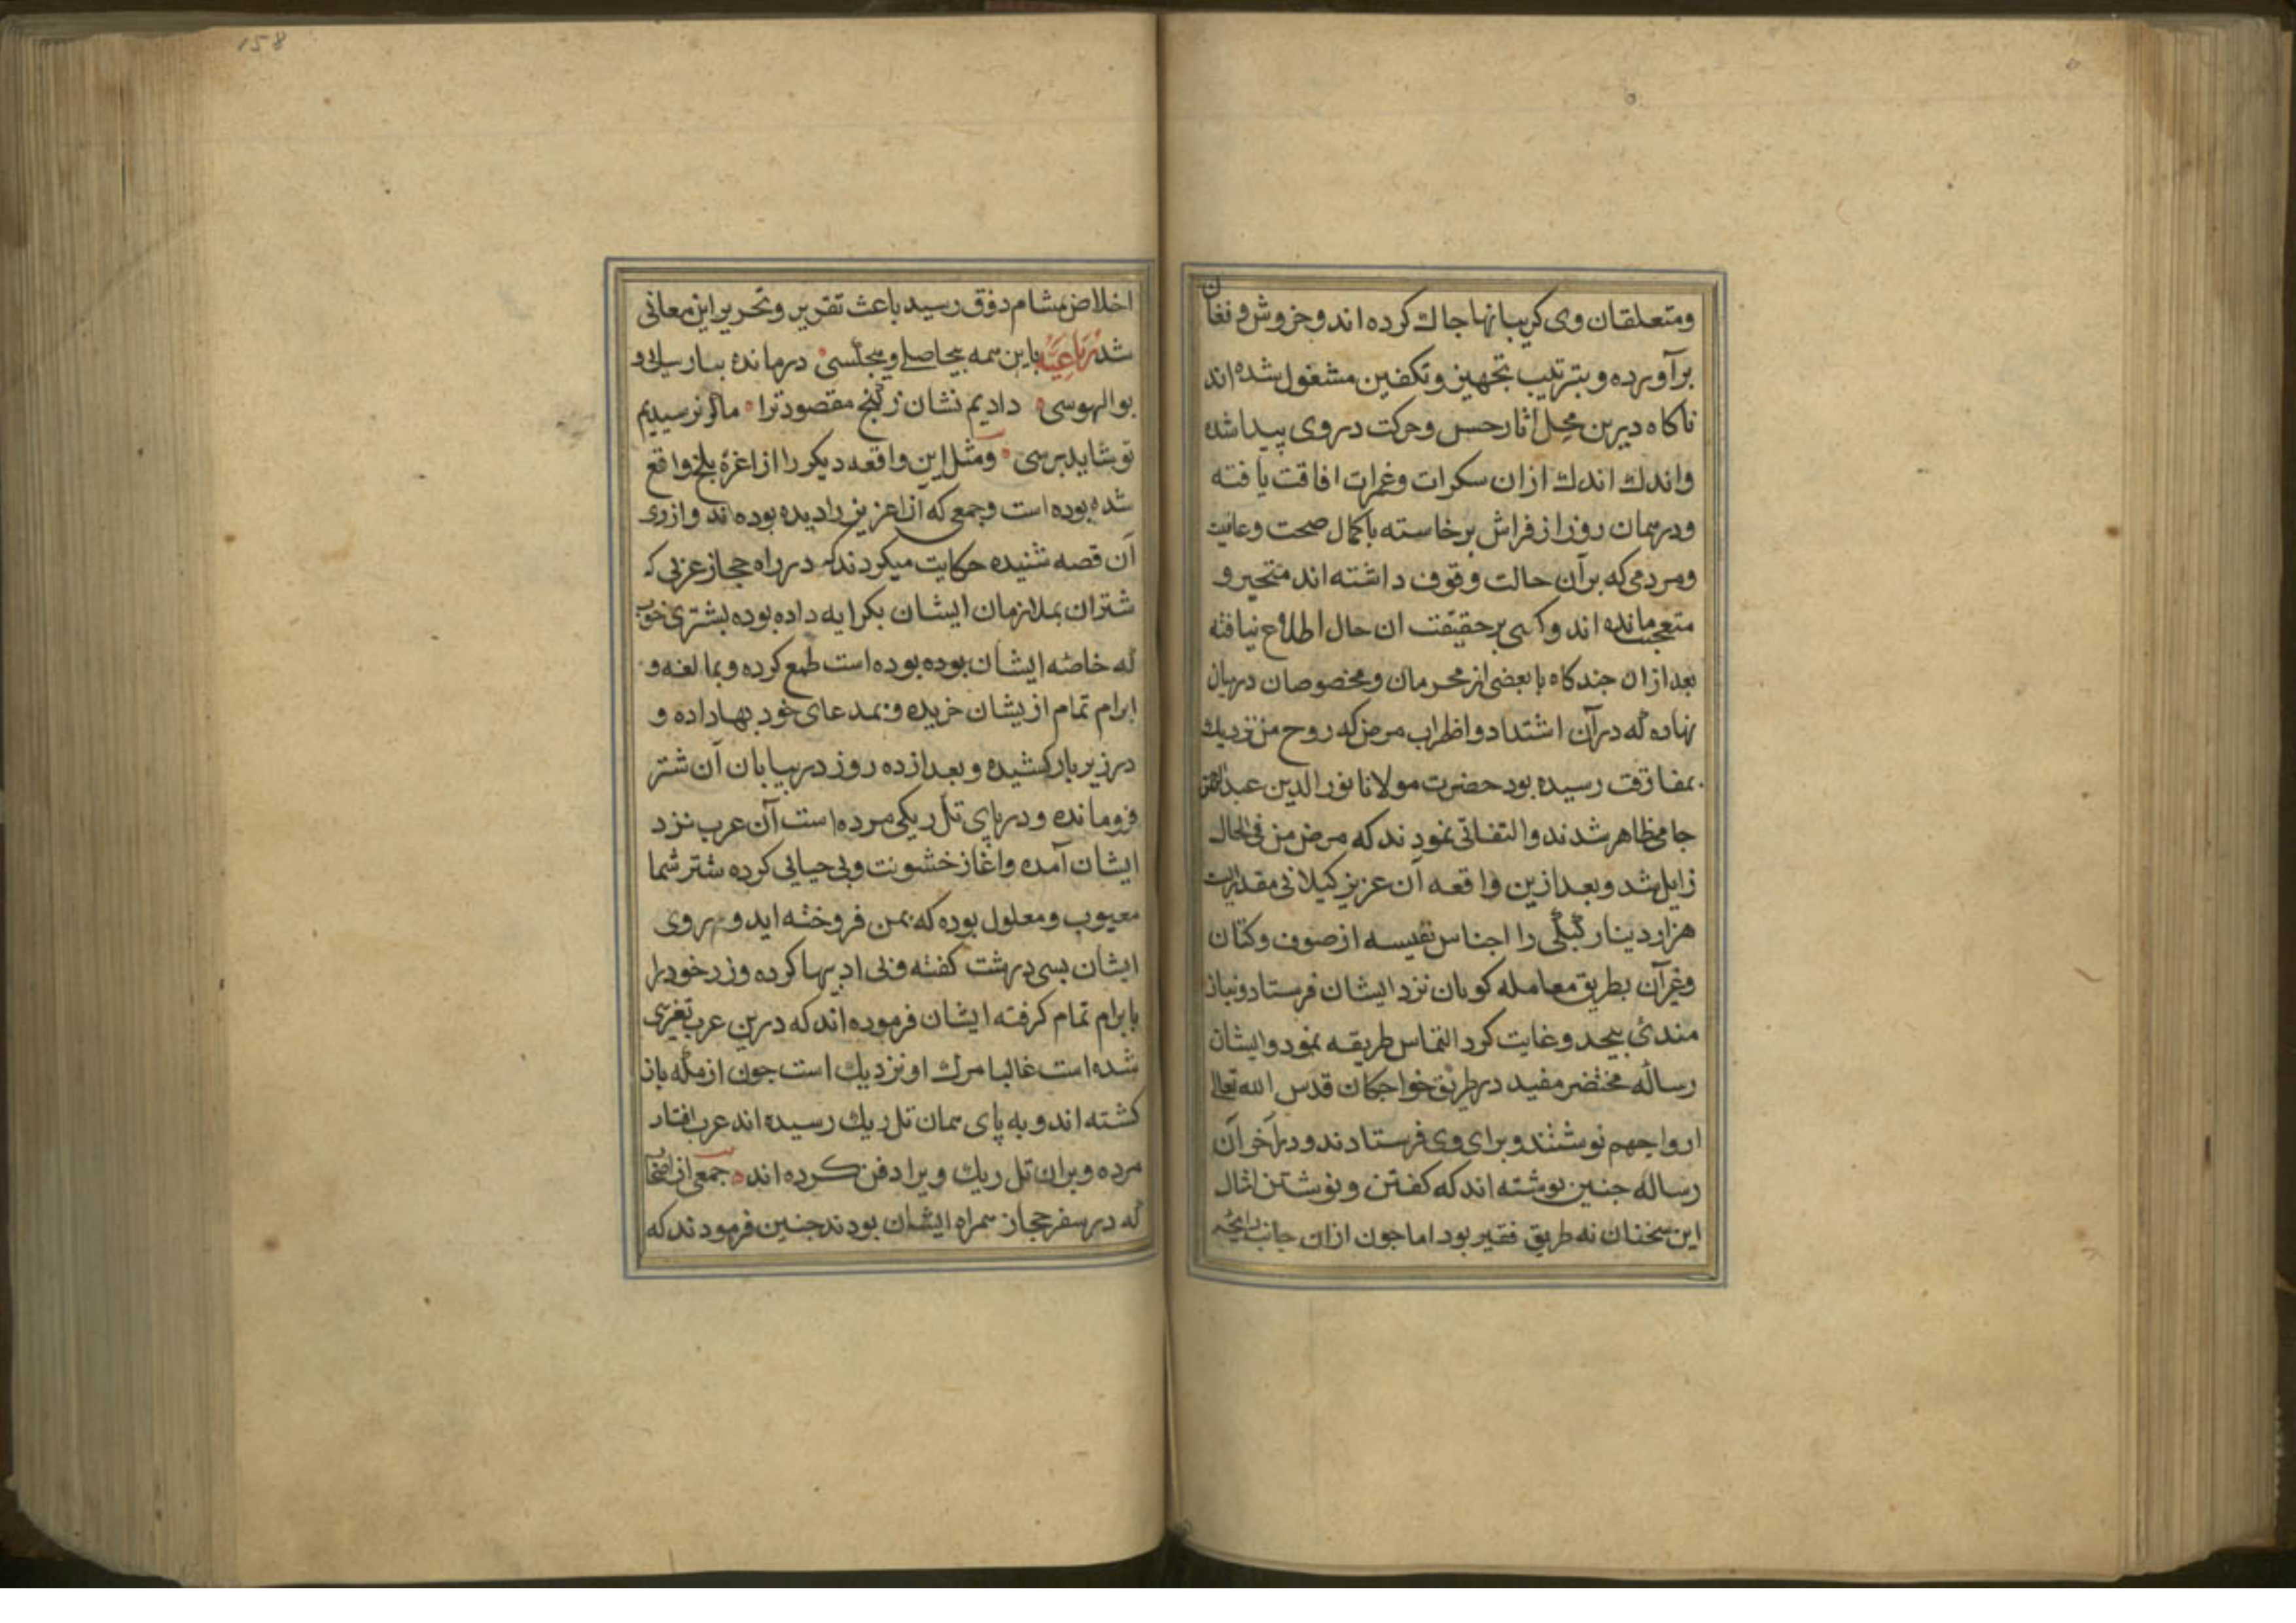 ومتعلقان وی کریبانها جاك کرده اند وخروش وفغان
برآورده وبترتیب تجهیز وتکفین مشغول شده اند
ناکاه درین محل اثار حس وحرکت در وی پیدا شده
واندك اندك ازان سکرات وغمرات افاقت یافته
ودر همان روز از فراش برخاسته با کمال صحت وعافیت
ومردمی که بر آن حالت وقوف داشته اند متحیر و
متعجب مانده اند وکسی بر حقیقت ان حال اطلاع نیافته
بعد ازان جندکاه با بعضی از محرمان ومخصوصان درمیان
نهاده که در آن اشتداد واضطراب مرض که روح من نزدیك
بمفارقت رسیده بود حضرت مولانا نور الدین عبد الرحمن
جامی ظاهر شدند والتفاتی نمودند که مرض من فی الحال
زایل شد وبعد ازین واقعه آن عزیز کیلانی مقدار
هزار دینار کبکی را اجناس نفیسه از صوف وکتان
وغیرآن بطریق معامله کویان نزد ایشان فرستاد ونیاز
مندئ بیحد وغایت کرد التماس طریقه نمود وایشان
رساله مختصر مفید در طریق خواجکان قدس الله تعالی
ارواحهم نوشتند وبرای وی فرستادند ودر آخر آن
رساله جنین نوشته اند که کفتن ونوشتن امثال
این سخنان نه طریق فقیر بود اما جون ازان جانب رایحه
اخلاص بمشام ذوق رسید باعث تقریر وتحریر این معانی
شد رباعیه با این همه بیحاصلی وهیچکسی درمانده بنارسایی و
بوالهوسی دادیم نشان ز کنج مقصود ترا ما کر نرسیدیم
تو شاید برسی ومثل این واقعه دیکر را از اعزهٔ بلخ واقع
شده بوده است وجمعی که آن عزیز را دیده بوده اند واز وی
آن قصه شنیده حکایت میکردند که در راه حجاز عربی که
شتران بملازمان ایشان بکرایه داده بوده بشتری خوب
که خاصه ایشان بوده بوده است طمع کرده وبمبالغه و
ابرام تمام ازیشان خریده وبمدعای خود بها داده و
در زیر بار کشیده وبعد از ده روز در بیابان آن شتر
فرومانده ودر پای تل ریکی مرده است آن عرب نزد
ایشان آمده واغاز خشونت وبی حیایی کرده شتر شما
معیوب ومعلول بوده که بمن فروخته اید ودر روی
ایشان بسی درشت کفته وبی ادبیها کرده وزر خود را
بابرام تمام کرفته ایشان فرموده اند که درین عرب تغیری
شده است غالبا مرك او نزدیك است جون از مکه باز
کشته اند وبه پای همان تل ریك رسیده اند عرب افتاده
مرده وبران تل ریك ویرا دفن کرده اند جمعی از اصحاب
که در سفر حجاز همراه ایشان بودند جنین فرمودند که
158